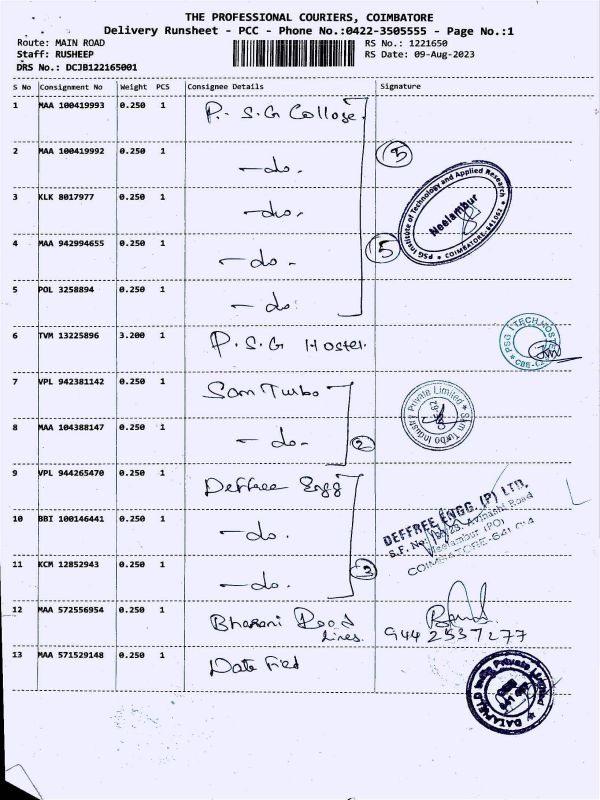 THE PROFESSIONAL COURIERS, COIMBATORE
Delivery Runsheet - PCC - Phone No.:0422-3505555 - Page No.:1
Route: MAIN ROAD RS No.: 1221650
Staff: RUSHEEP RS Date: 09-Aug-2023
DRS No.: DCJB122165001
S No Consignment No Weight PCS Consignee Details Signature
1 MAA 100419993 0.250 1 P. S. G College.
2 MAA 100419992 0.250 1 -do. 5
3 KLK 8017977 0.250 1 -do.
PSG Institute of Technology and Applied Research
Neelambur
COIMBATORE-641 062
4 MAA 942994655 0.250 1 -do- 5
5 POL 3258894 0.250 1 -do.
6 TVM 13225896 3.200 1 P. S. G Hostel.
PSG iTECH HOSTEL
7 VPL 942381142 0.250 1 Sam Turbo
Sam Turbo Industry Private Limited
8 MAA 104388147 0.250 1 -do- 2
9 VPL 944265470 0.250 1 Deffree Engg
DEFFREE ENGG. (P) LTD.
Avinashi Road
Neelambur (PO)
10 BBI 100146441 0.250 1 -do.
11 KCM 12852943 0.250 1 -do. 3
12 MAA 572556954 0.250 1 Bharani Road
Lines. 9442537277
13 MAA 571529148 0.250 1 Data Field
DATAFIELD India Private Limited